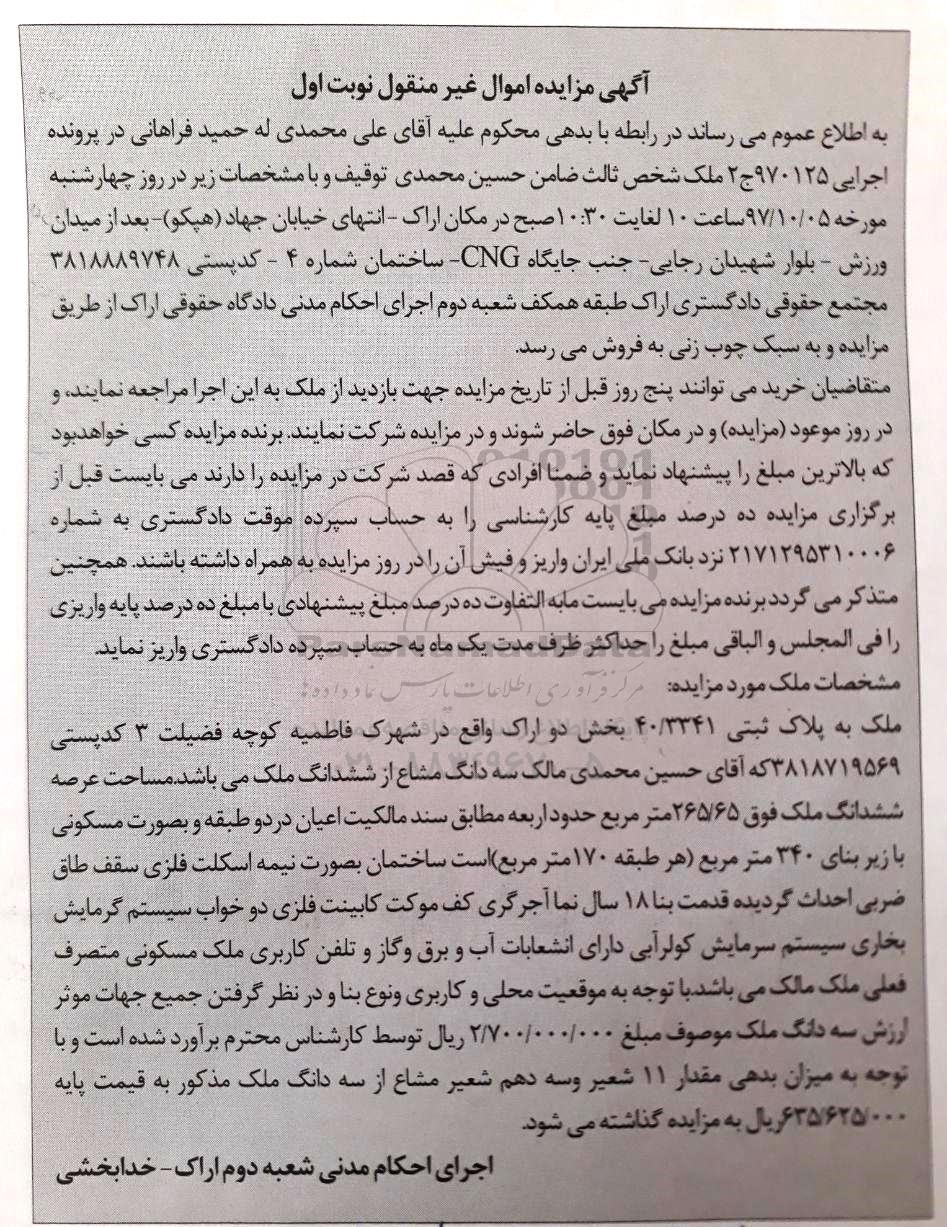 آگهی مزایده اموال غیر منقول نوبت اول
به اطلاع عموم می رساند در رابطه با بدهی محکوم علیه آقای علی محمدی له حمید فراهانی در پرونده
اجرایی ۹۷۰۱۲۵ج۲ ملک شخص ثالث ضامن حسین محمدی توقیف و با مشخصات زیر در روز چهارشنبه
مورخه ۹۷/۱۰/۰۵ساعت ۱۰ لغایت ۱۰:۳۰صبح در مکان اراک -انتهای خیابان جهاد (هپکو)-بعد از میدان
ورزش - بلوار شهیدان رجایی- جنب جایگاه CNG- ساختمان شماره ۴ - کدپستی ۳۸۱۸۸۸۹۷۴۸
مجتمع حقوقی دادگستری اراک طبقه همکف شعبه دوم اجرای احکام مدنی دادگاه حقوقی اراک از طریق
مزایده و به سبک چوب زنی به فروش می رسد.
متقاضیان خرید می توانند پنج روز قبل از تاریخ مزایده جهت بازدید از ملک به این اجرا مراجعه نمایند، و
در روز موعود (مزایده) و در مکان فوق حاضر شوند و در مزایده شرکت نمایند. برنده مزایده کسی خواهدبود
که بالاترین مبلغ را پیشنهاد نماید و ضمنا افرادی که قصد شرکت در مزایده را دارند می بایست قبل از
برگزاری مزایده ده درصد مبلغ پایه کارشناسی را به حساب سپرده موقت دادگستری به شماره
۲۱۷۱۲۹۵۳۱۰۰۰۶ نزد بانک ملی ایران واریز و فیش آن را در روز مزایده به همراه داشته باشند. همچنین
متذکر می گردد برنده مزایده می بایست مابه التفاوت ده درصد مبلغ پیشنهادی با مبلغ ده درصد پایه واریزی
را فی المجلس و الباقی مبلغ را حداکثر ظرف مدت یک ماه به حساب سپرده دادگستری واریز نماید.
مشخصات ملک مورد مزایده:
ملک به پلاک ثبتی ۴۰/۳۳۴۱ بخش دو اراک واقع در شهرک فاطمیه کوچه فضیلت ۳ کدپستی
۳۸۱۸۷۱۹۵۶۹که آقای حسین محمدی مالک سه دانگ مشاع از ششدانگ ملک می باشد.مساحت عرصه
ششدانگ ملک فوق ۲۶۵/۶۵متر مربع حدود اربعه مطابق سند مالکیت اعیان در دو طبقه و بصورت مسکونی
با زیر بنای ۳۴۰ متر مربع (هر طبقه ۱۷۰متر مربع)است ساختمان بصورت نیمه اسکلت فلزی سقف طاق
ضربی احداث گردیده قدمت بنا ۱۸ سال نما آجرگری کف موکت کابینت فلزی دو خواب سیستم گرمایش
بخاری سیستم سرمایش کولرآبی دارای انشعابات آب و برق وگاز و تلفن کاربری ملک مسکونی متصرف
فعلی ملک مالک می باشد.با توجه به موقعیت محلی و کاربری ونوع بنا و در نظر گرفتن جمیع جهات موثر
ارزش سه دانگ ملک موصوف مبلغ ۲/۷۰۰/۰۰۰/۰۰۰ ریال توسط کارشناس محترم برآورد شده است و با
توجه به میزان بدهی مقدار ۱۱ شعیر وسه دهم شعیر مشاع از سه دانگ ملک مذکور به قیمت پایه
۶۳۵/۶۲۵/۰۰۰ریال به مزایده گذاشته می شود.
اجرای احکام مدنی شعبه دوم اراک- خدابخشی
ParsNamadData
مرکز فرآوری اطلاعات پارس نماد داده ها